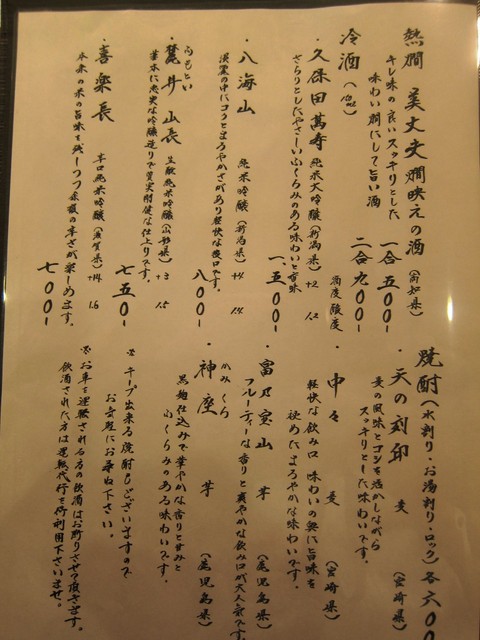 熱燗 美丈夫 燗映えの酒（高知県）
キレ味の良いスッキリとした
味わい燗にして旨い酒
一合 五〇〇-
二合 九〇〇-
冷酒（一合）
酒度 酸度
・久保田萬寿 純米大吟醸（新潟県） +2 1.2
さらりとしたやさしいふくらみのある味わいと香味
一、五〇〇-
・八海山 純米吟醸（新潟県） +4 1.4
淡麗の中にコクとまろやかさがあり軽快な後口です。
八〇〇-
ふもとい
・麓井 山長 生酛純米吟醸（山形県） +3 1.5
基本に忠実な吟醸造りで質実剛健な仕上りです。
七五〇-
・喜楽長 辛口純米吟醸（滋賀県） +14 1.6
本来の米の旨味を残しつつ究極の辛さが楽しめます。
七〇〇-
焼酎（水割り・お湯割り・ロック）各六〇〇
・天の刻印 麦（宮崎県）
麦の風味とコクを活かしながら
スッキリとした味わいです。
・中々 麦（宮崎県）
軽快な飲み口 味わいの奥に旨味を
秘めたまろやかな味わいです。
・富乃宝山 芋（鹿児島県）
フルーティーな香りと爽やかな飲み口が大人気です。
かみくら
・神座 芋（鹿児島県）
黒麹仕込みで華やかな香りと甘みと
ふくらみのある味わいです。
※キープ出来る焼酎もございますので
お気軽にお尋ね下さい。
※お車を運転される方の飲酒はお断りさせて頂きます。
飲酒された方は運転代行を御利用下さいませ。